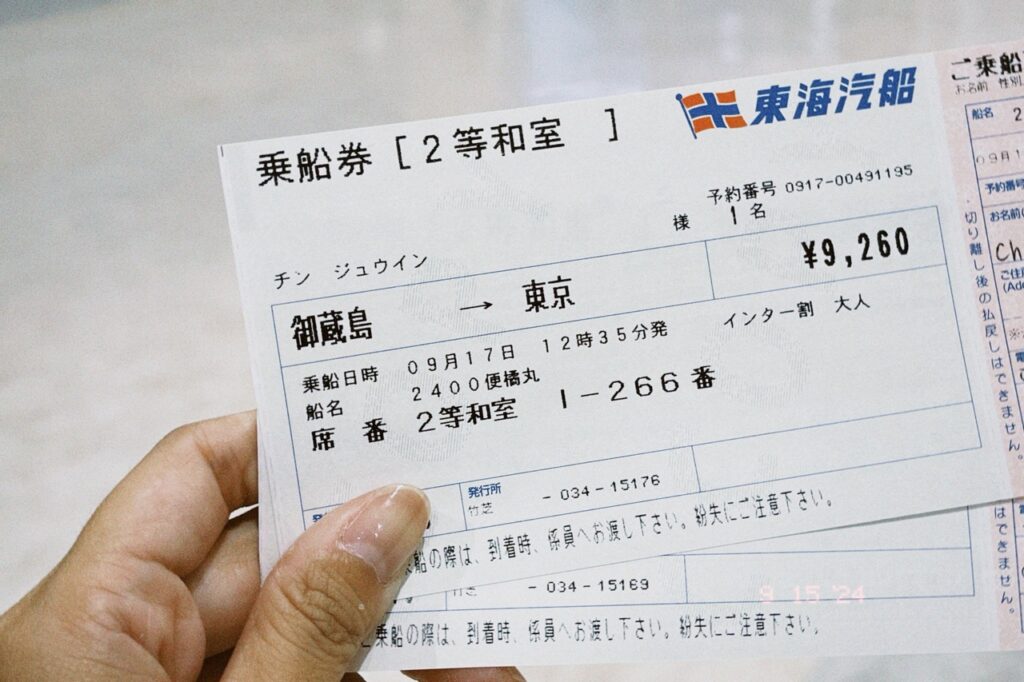 乗船券 [２等和室　]
東海汽船
予約番号 0917-00491195
様　1名
チン　ジュウイン
¥9,260
御蔵島　→　東京
インター割　大人
乗船日時　０９月１７日　１２時３５分発
船名　２４００便橘丸
席　番　２等和室　１－２６６番
発行所
竹芝
-034-15176
船の際は、到着時、係員へお渡し下さい。紛失にご注意下さい。
-034-15169
乗船の際は、到着時、係員へお渡し下さい。紛失にご注意下さい。
9 15 '24
ご乗船
お名前　性別
船名　2
09月1
予約番号
お名前
Ch
ご住所
(Add
切り離し後の払戻しはできません。
はできません。